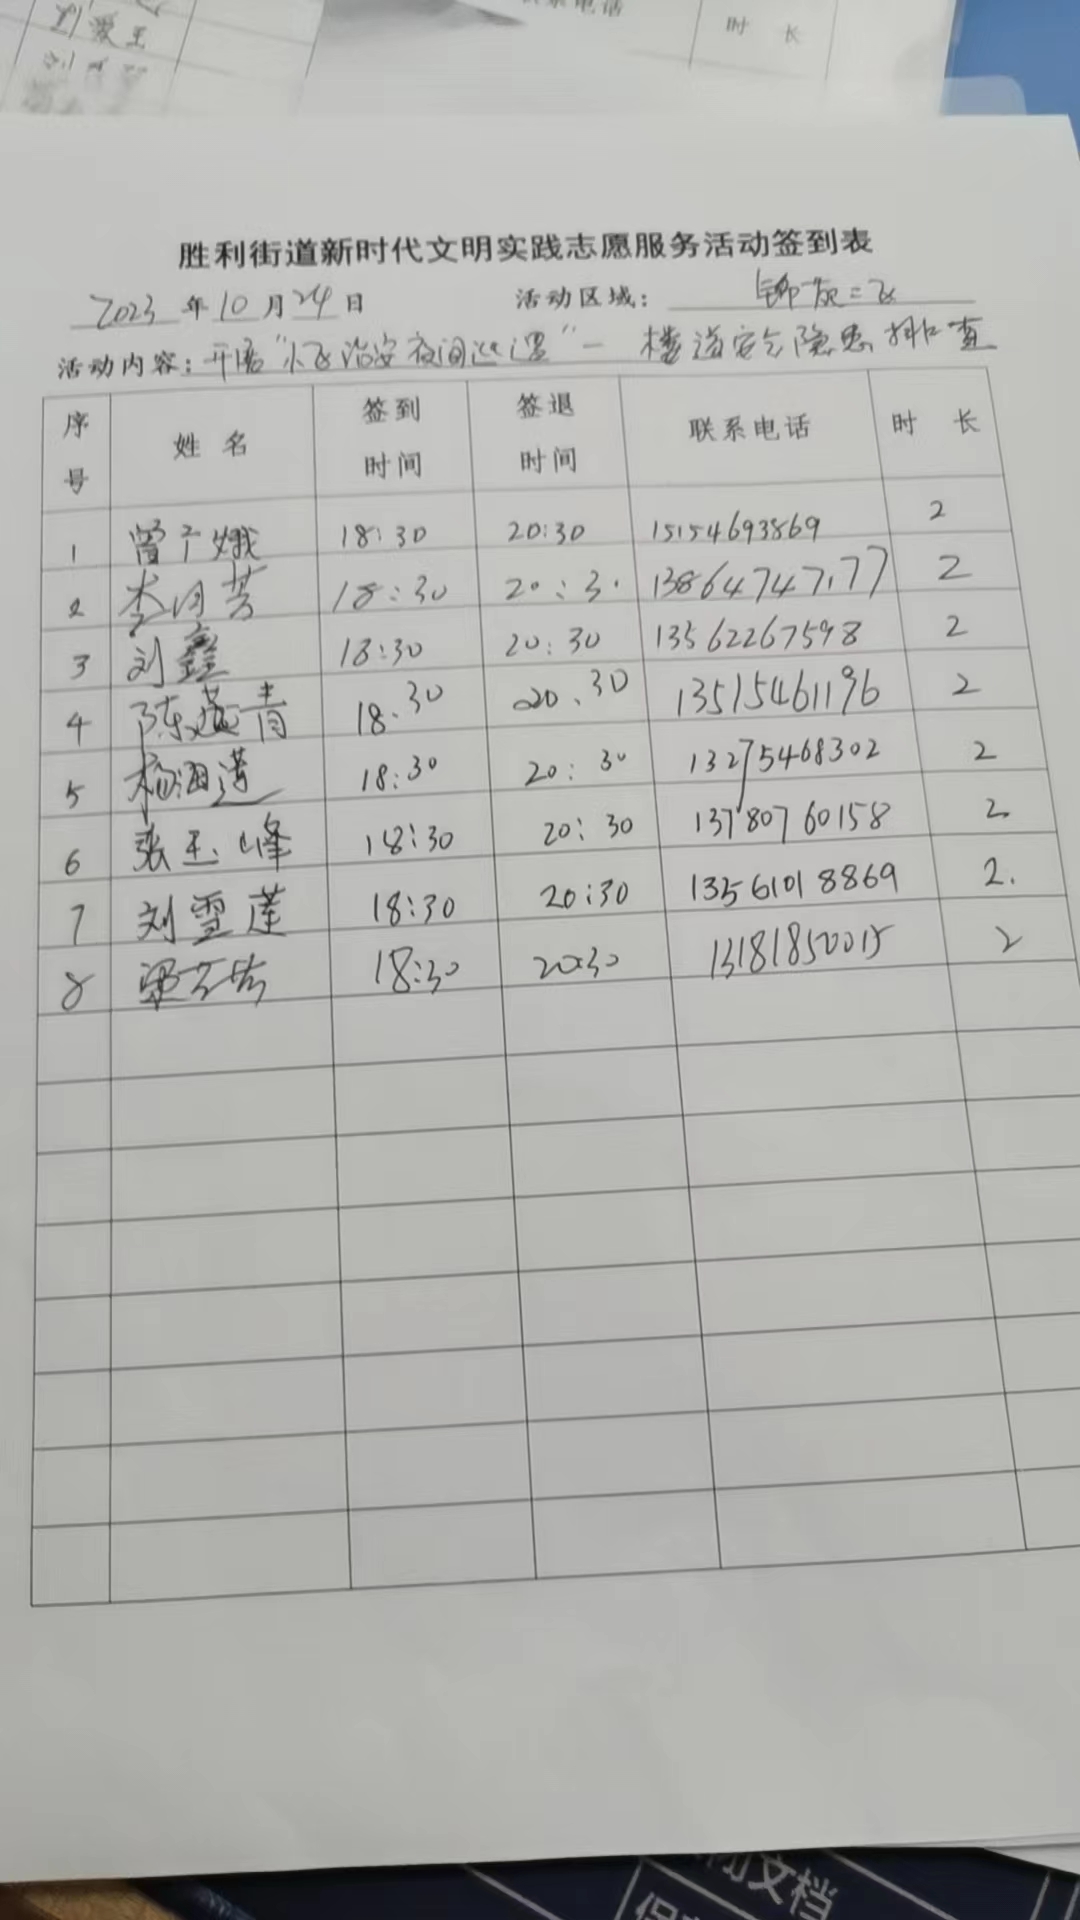 刘爱玉
联系电话
时 长
胜利街道新时代文明实践志愿服务活动签到表
2023 年 10 月 24 日 活动区域:
活动内容: 开展"小飞治安夜间巡逻"— 楼道安全隐患排查
序号 姓名 签到时间 签退时间 联系电话 时 长
1 18:30 20:30 15154693869 2
2 李月芳 18:30 20:3. 2
3 刘鑫 18:30 20:30 13562267598 2
4 陈燕青 18.30 20.30 13515461196 2
5 杨海莲 18:30 20:30 13275468302 2
6 张玉峰 18:30 20:30 13780760158 2
7 刘雪莲 18:30 20:30 13561018869 2.
8 18:30 20:30 13181850015 2
文档